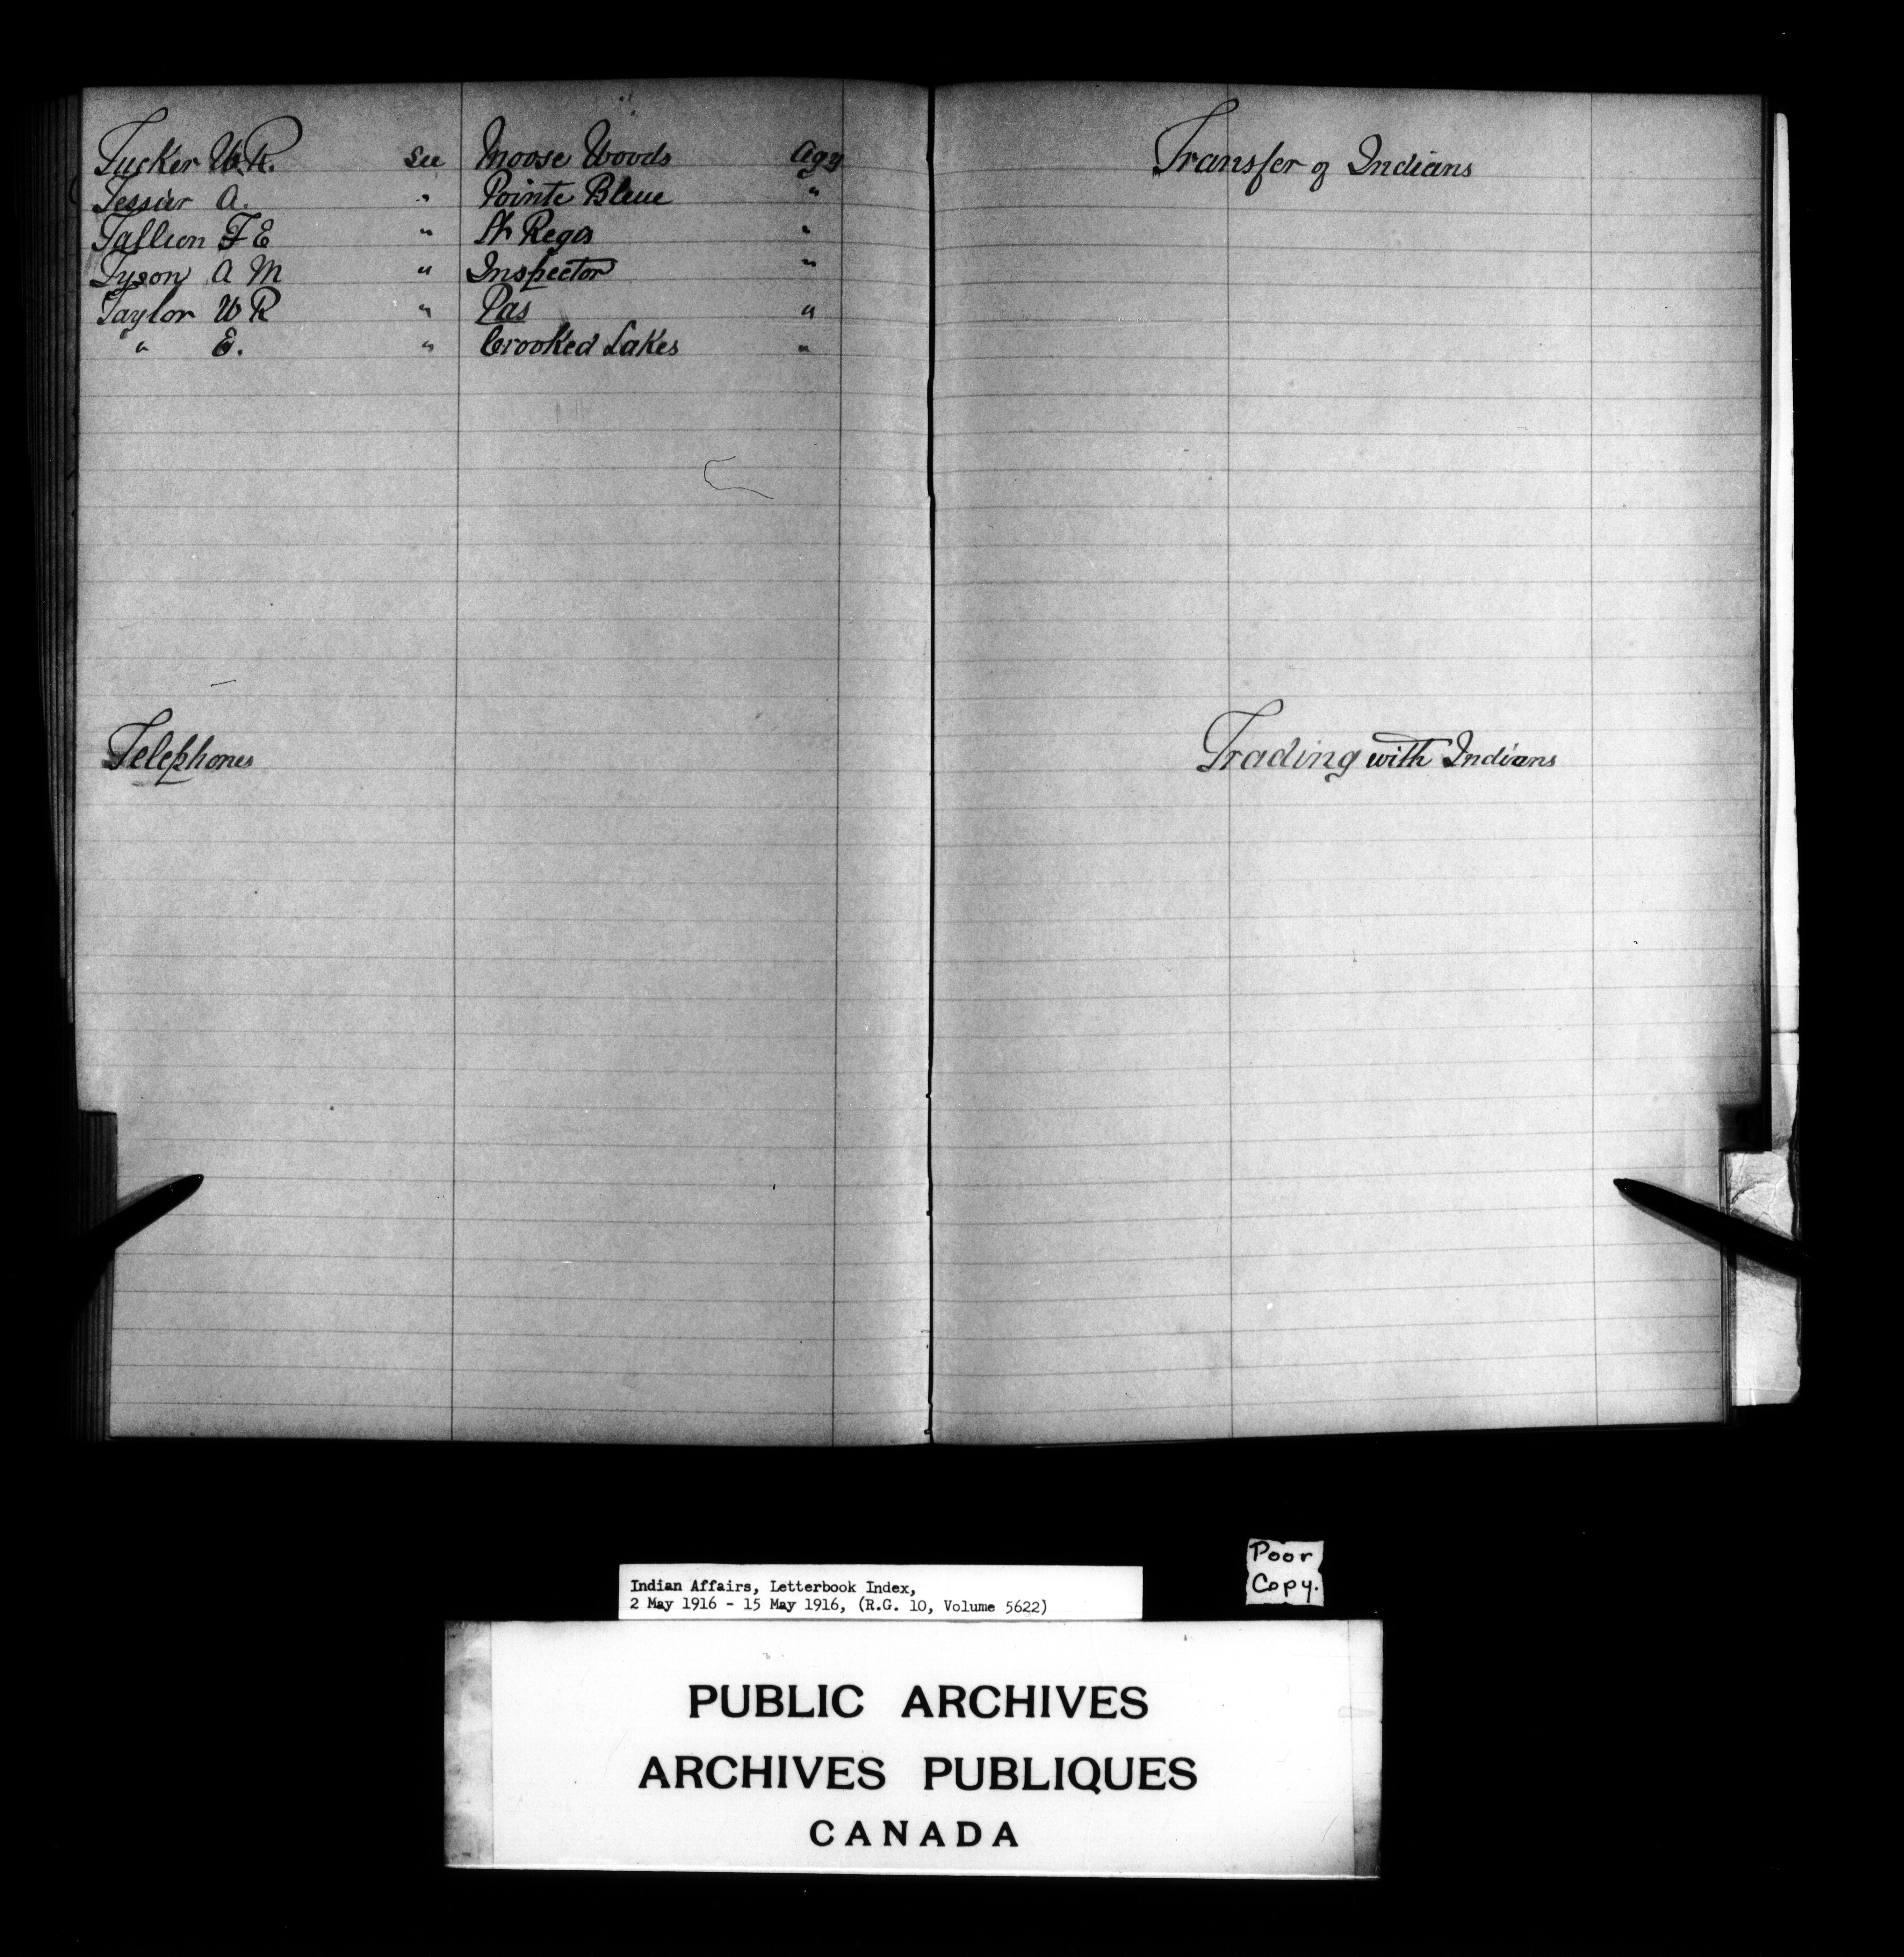 Tucker W.R. See Moose Woods Agy
Tessier A. " Pointe Bleue "
Taillion F E " St Regis "
Tyson A M " Inspector "
Taylor W R " Pas "
" E. " Crooked Lakes "
Telephones
Transfer of Indians
Trading with Indians
Poor
Copy.
Indian Affairs, Letterbook Index,
2 May 1916 - 15 May 1916, (R.G. 10, Volume 5622)
PUBLIC ARCHIVES
ARCHIVES PUBLIQUES
CANADA